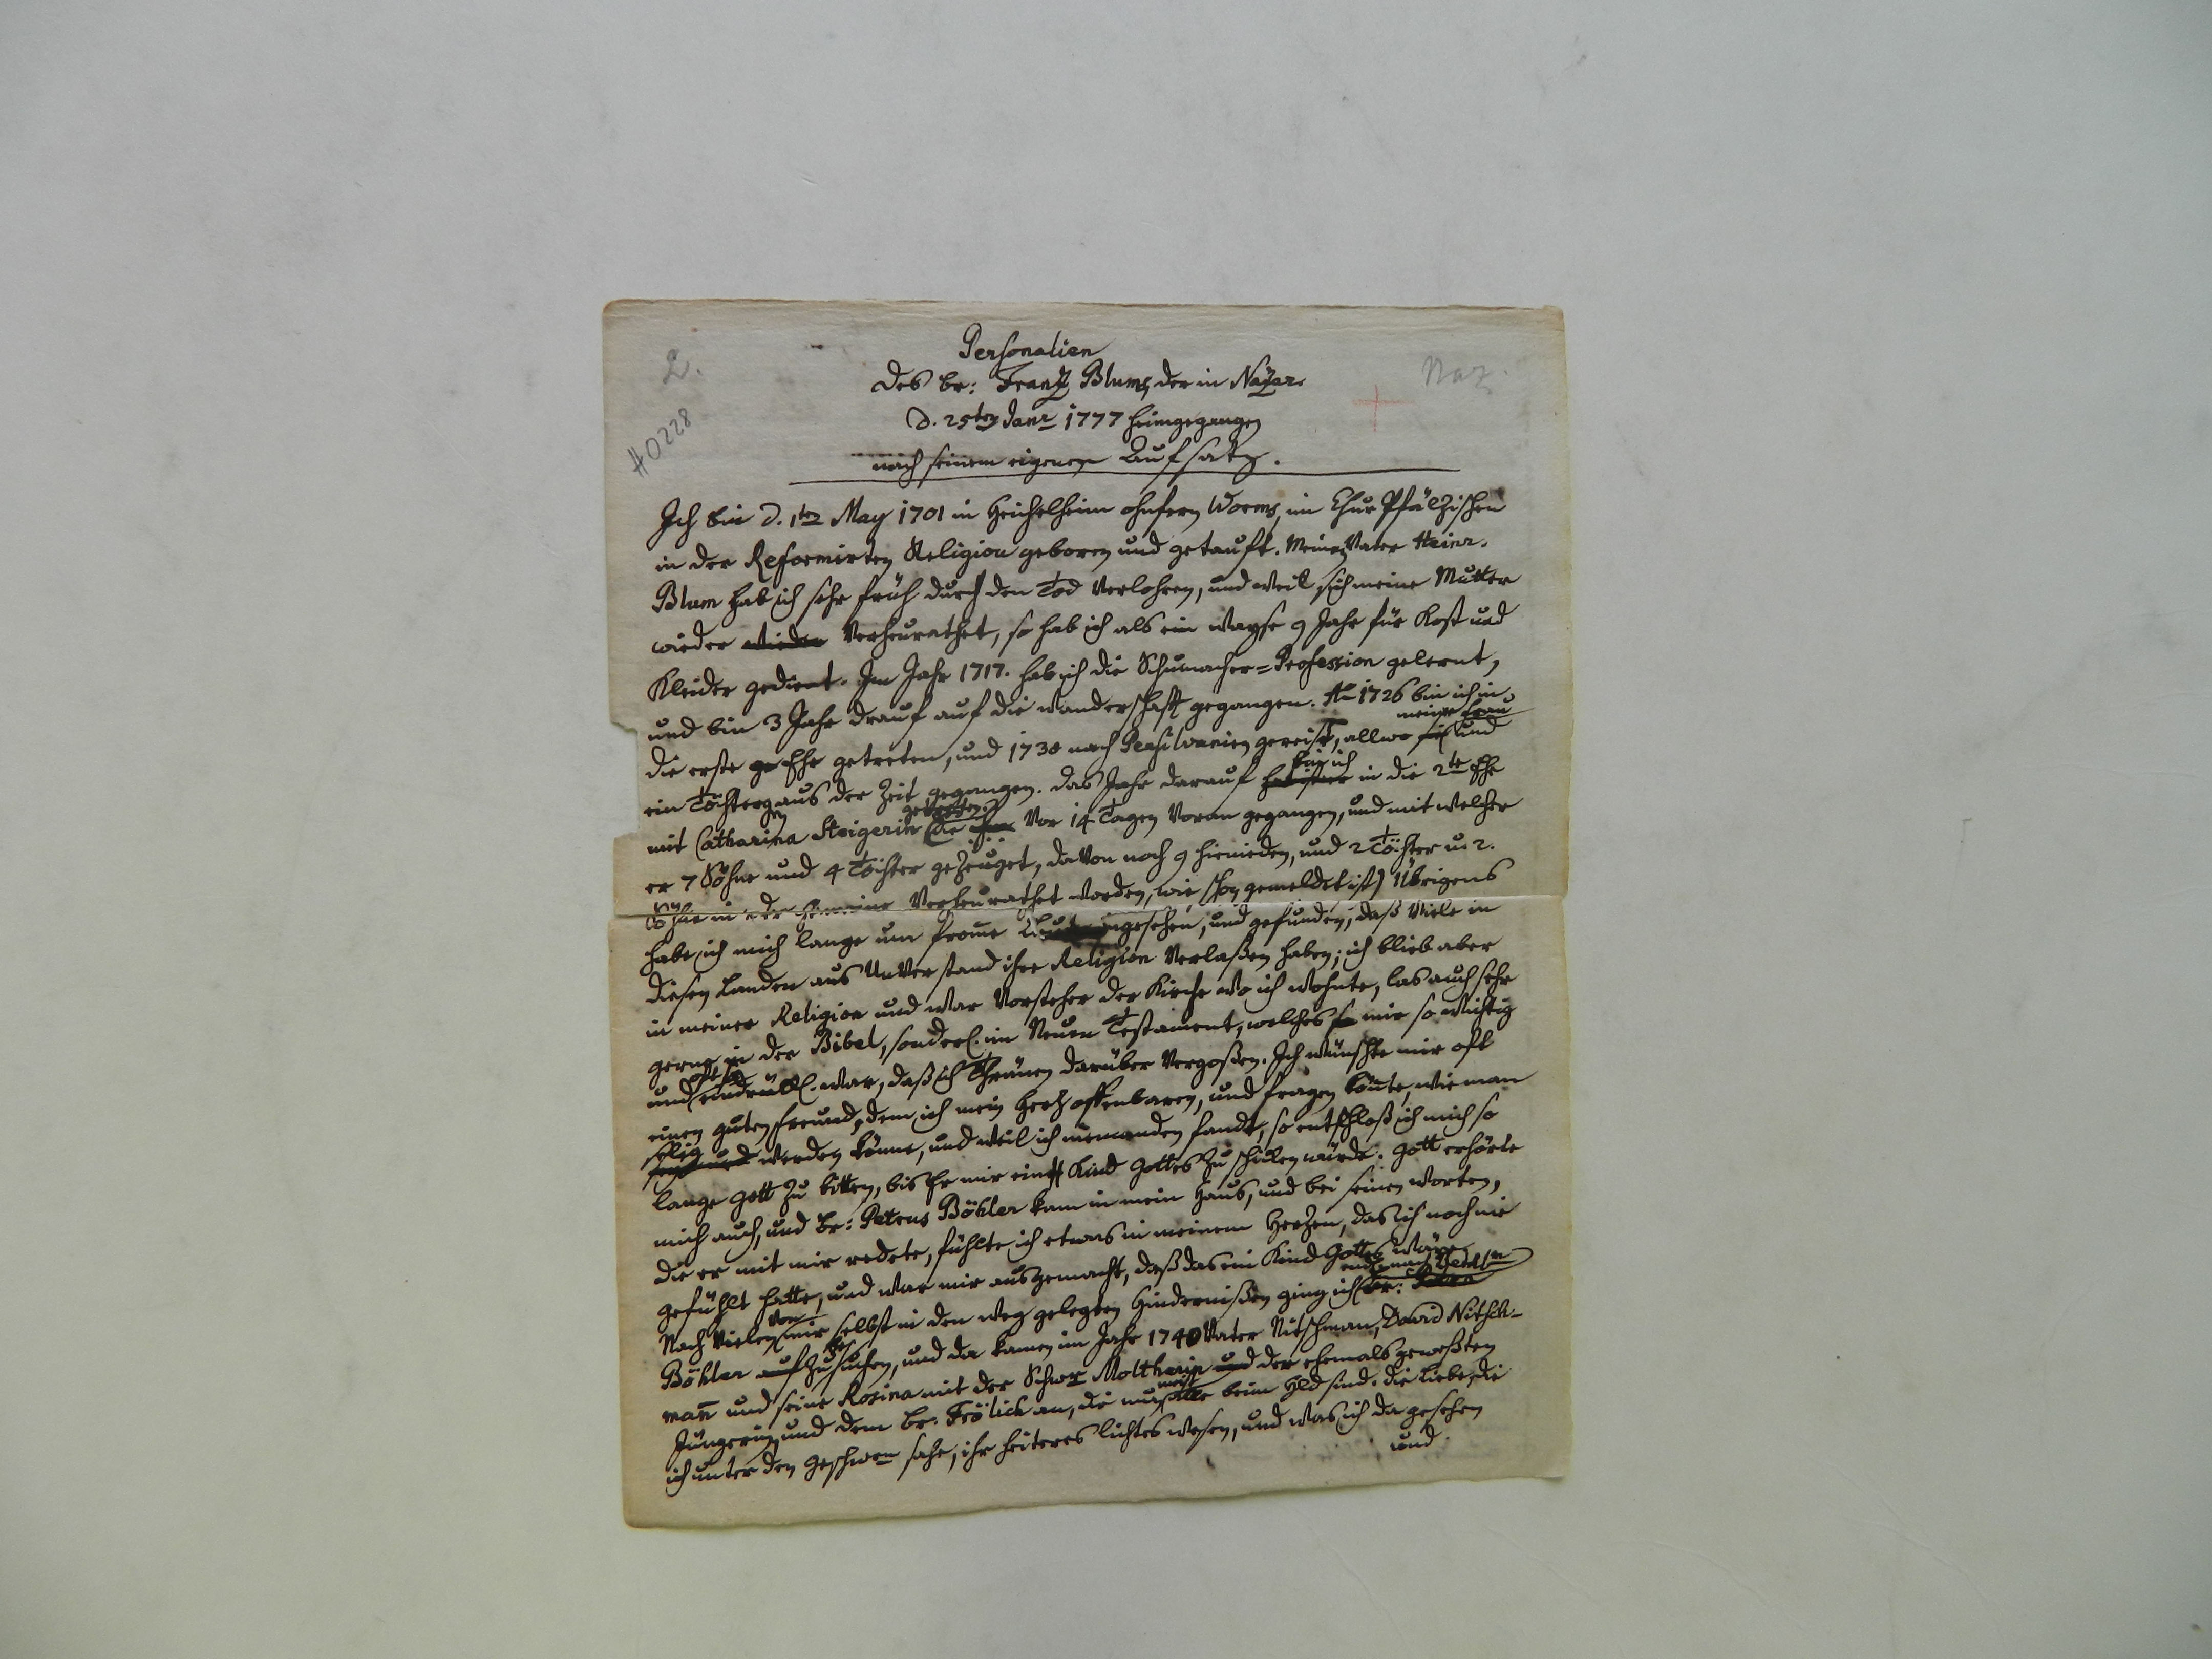 Personalien
2.
Naz.
des br: Frantz Blums, der in Nazar.
#0228
d. 25ten Janr 1777 heimgegangen
nach seinem eigenen Aufsatz.
Ich bin d. 1ten May 1701 in Heichelheim ohnfern Worms, im Chur Pfälzischen
in der Reformirten Religion geboren und getauft. Meinen Vater Heinr.
Blum hab ich sehr früh durch den Tod verlohren, und weil sich meine Mutter
wieder wieder verheurathet, so hab ich als ein Wayse 9 Jahr für Kost und
Kleider gedient. Im Jahr 1717. hab ich die Schumacher=Profession gelernt,
und bin 3 Jahr drauf auf die Wanderschafft gegangen. Ao 1726 bin ich in
meine Frau
die erste Ehe getreten, und 1738 nach Pensilvanien gereist, allwo und
bin ich
ein Töchtergen aus der Zeit gegangen. das Jahr darauf in die 2te Ehe
getretten
mit Catharina Steigerin (die vor 14 Tagen voran gegangen, und mit welcher
er 7 Söhne und 4 Töchter gezeuget, davon noch 9 hienieden, und 2 Töchter u. 2.
Söhne in der Gemeine verheurathet worden, wie schon gemeldet ist) Übrigens
habe ich mich lange um frome Leute umgesehen, und gefunden, daß viele in
diesen Landen aus Unverstand ihre Religion verlaßen haben; ich blieb aber
in meiner Religion und war Vorsteher der Kirche wo ich wohnte, las auch sehr
gerne in der Bibel, sonderl. im Neuen Testament, welches mir so wichtig
und eindrückl. war, daß ich Thränen darüber vergoßen. Ich wünschte mir oft
einen guten Freund, dem ich mein Herz offenbaren, und fragen könte, wie man
selig werden könne, und weil ich niemanden fandt, so entschloß ich mich so
lange Gott zu bitten, bis Er mir ein Kind Gottes zu schicken würde. Gott erhörte
mich auch, und br: Petrus Böhler kam in mein Haus, und bei seinen Worten,
die er mit mir redete, fühlte ich etwas in meinem Herzen, das ich noch nie
gefühlt hatte, und war mir ausgemacht, daß das ein Kind Gottes wäre
von
Nach vielen mir selbst in den Weg gelegten Hindernißen ging ich br:
Böhler auf zu suchen, und da kamen im Jahr 1740 Vater Nitschman, David Nitsch-
mañ und seine Rosina mit der Schwr Moltherin und der ehemals gewesten
meist
Jüngerin, und dem br. Frölich an, die nun alle beim Hld sind. die Liebe, die
ich unter den Geschwrn sahe, ihr heiteres lichtes Wesen, und was ich da gesehen
und